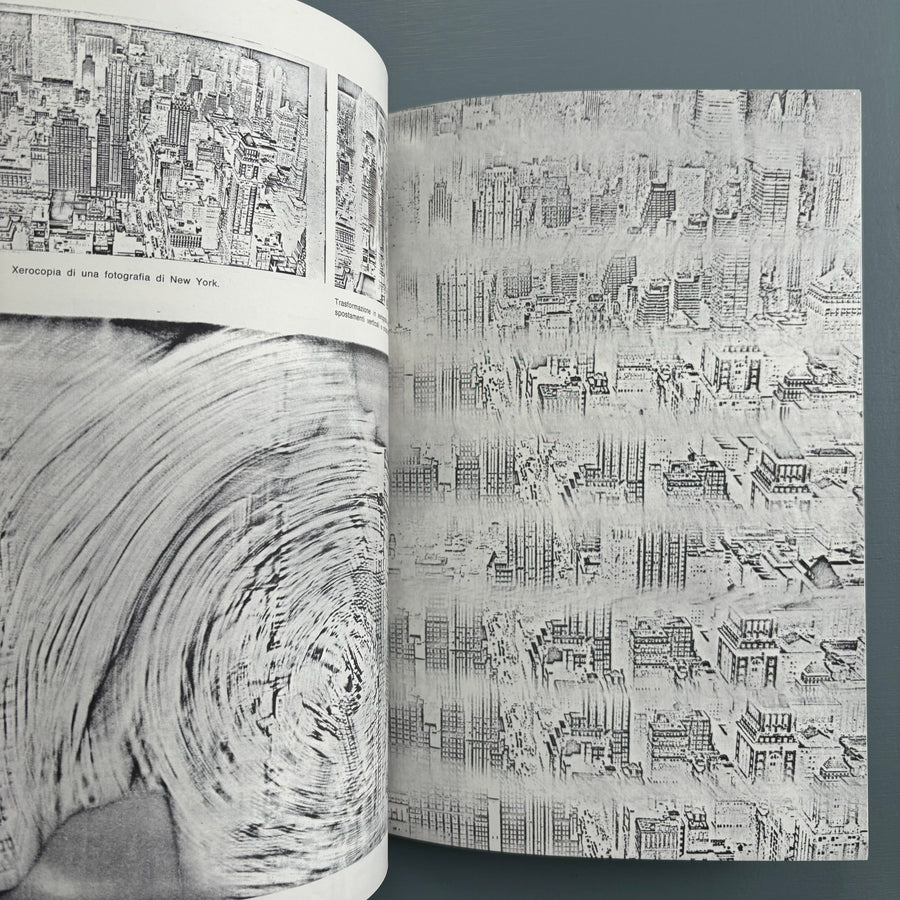 Xerocopia di una fotografia di New York.
Trasformazione in
spostamenti verticali e